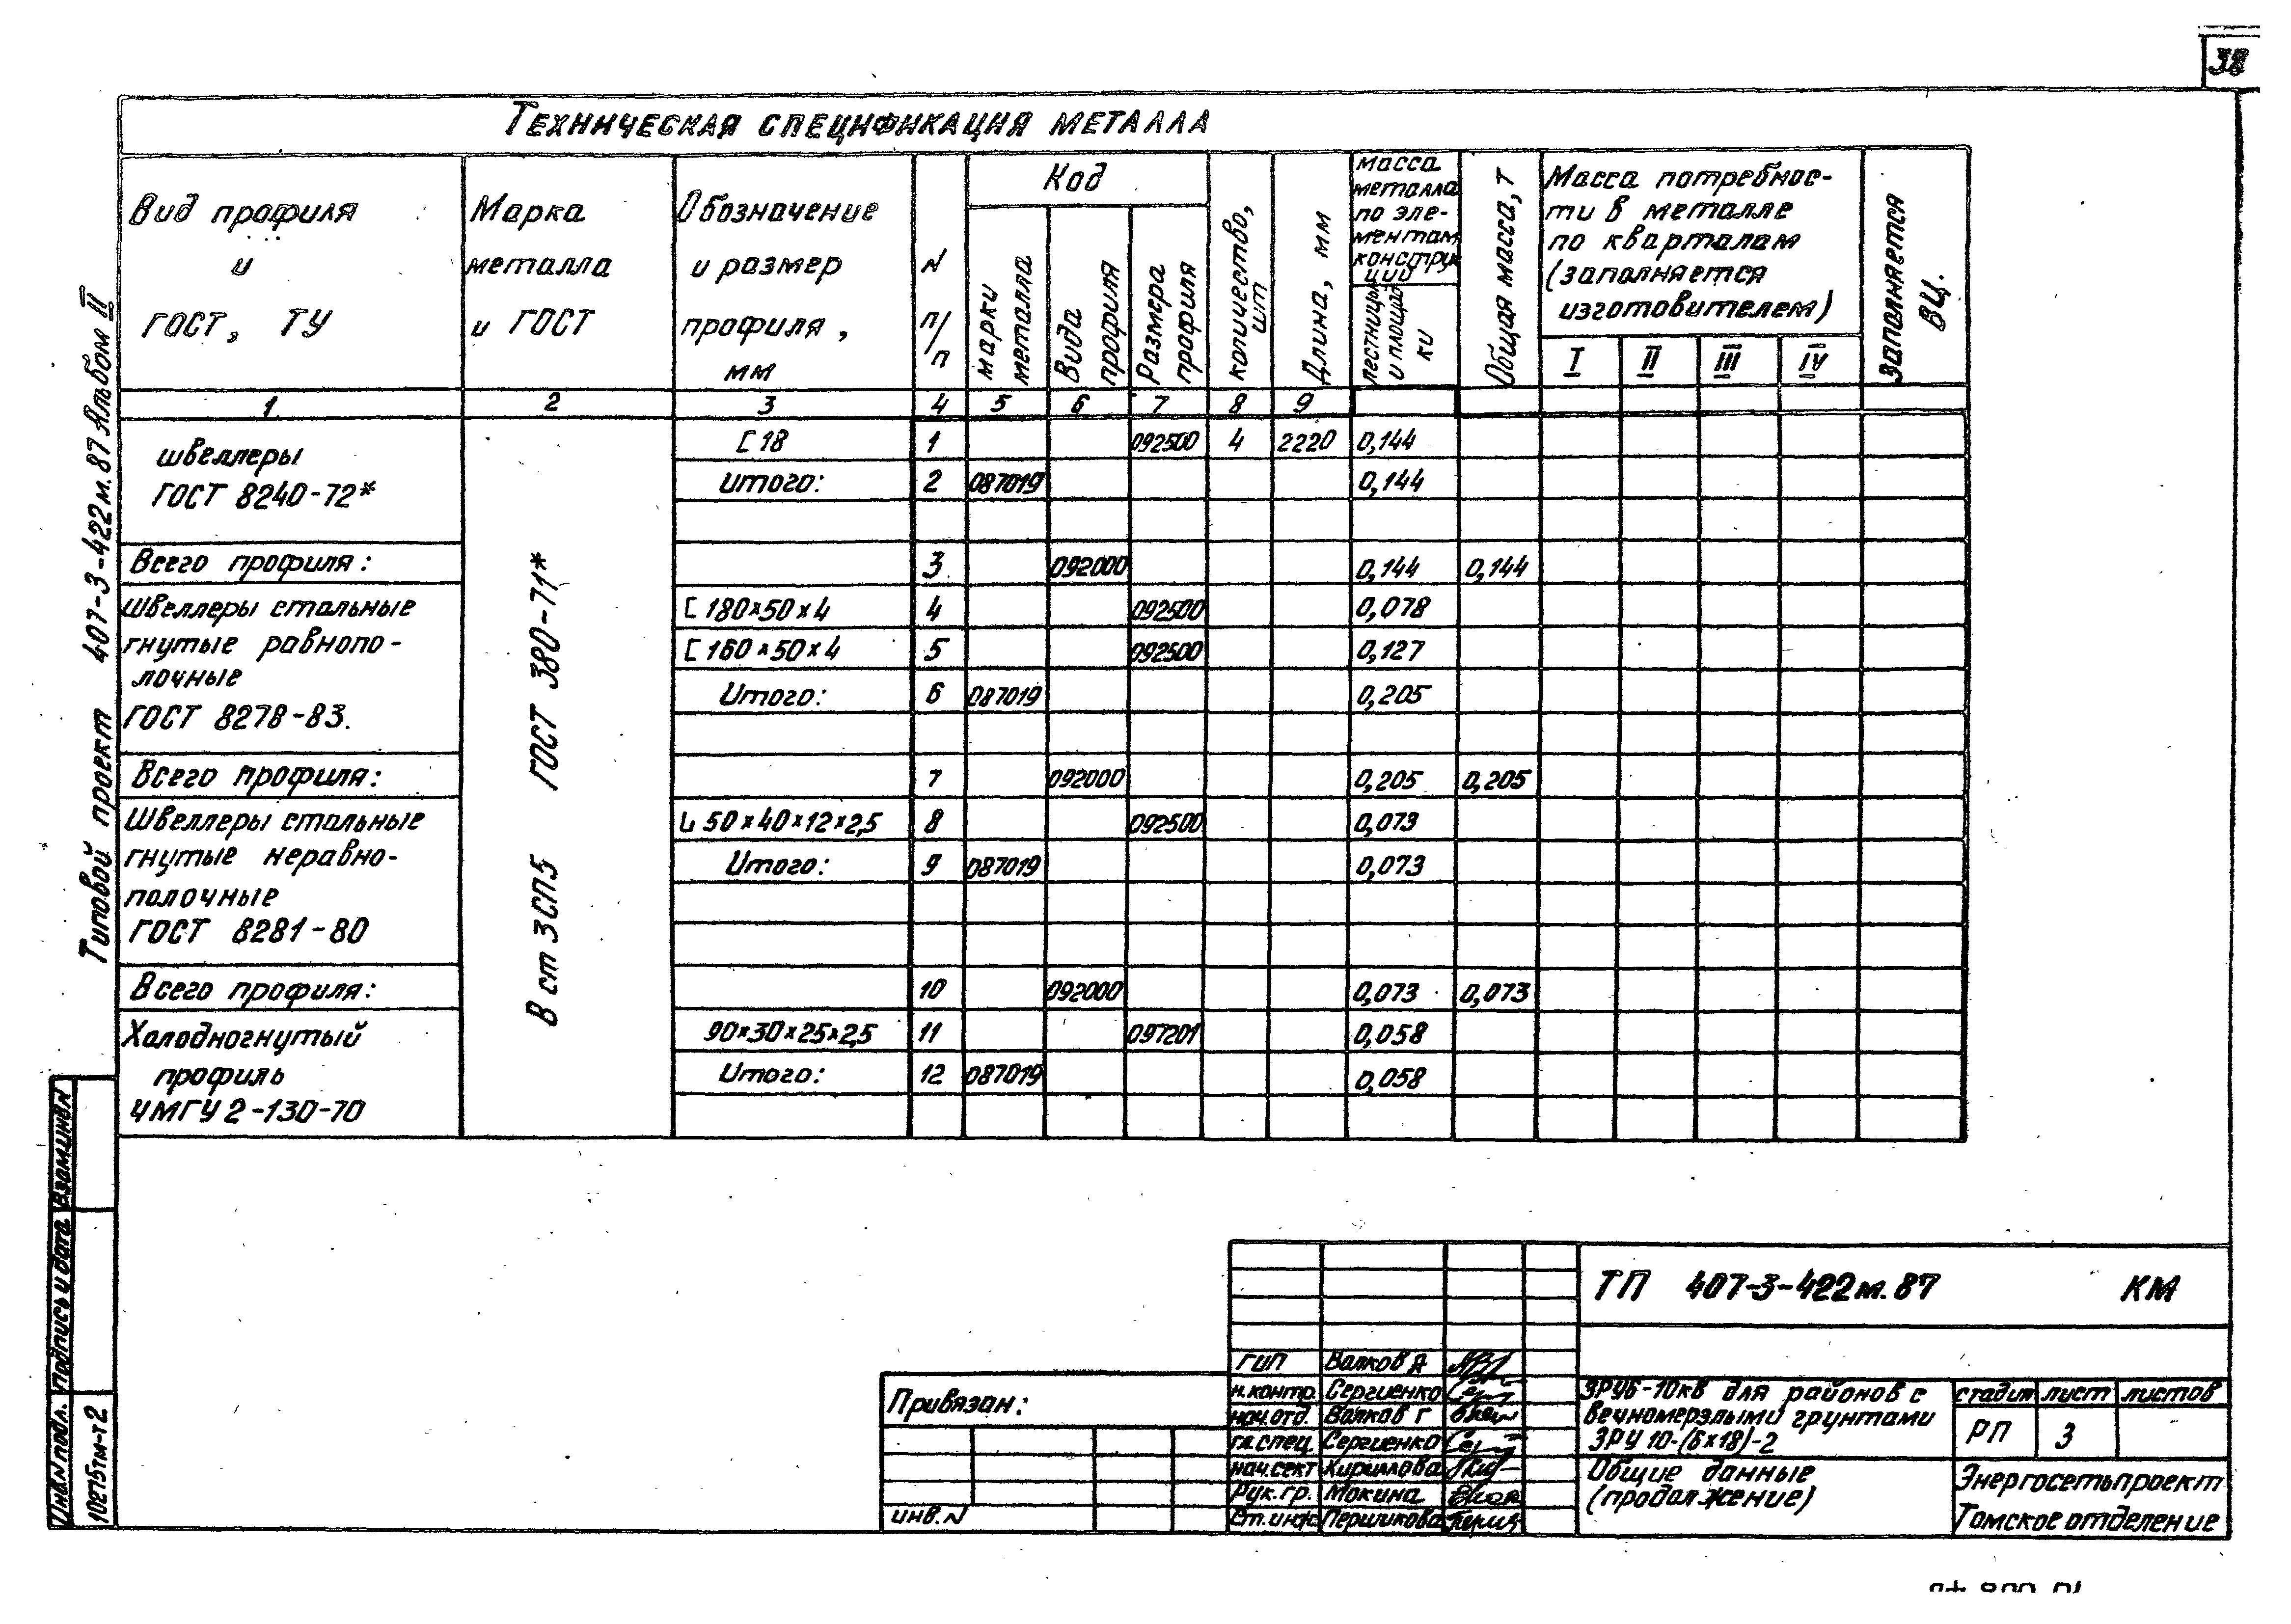 38
Техническая спецификация металла
Вид профиля
и
ГОСТ, ТУ
Марка
металла
и ГОСТ
Обозначение
и размер
профиля,
мм
N
п/п
Код
марки металла
Вида профиля
Размера профиля
количество, шт
Длина, мм
масса
металла
по эле-
ментам
конструк
ций
лестницы
и площад
ки
Общая масса, т
Масса потребнос-
ти в металле
по кварталам
(заполняется
изготовителем)
I II III IV
Заполняется ВЦ.
1 2 3 4 5 6 7 8 9
швеллеры
ГОСТ 8240-72*
В ст 3СП5 ГОСТ 380-71*
[ 18 1 092500 4 2220 0,144
итого: 2 087019 0,144
Всего профиля: 3 092000 0,144 0,144
Швеллеры стальные
гнутые равнопо-
лочные
ГОСТ 8278-83.
[ 180×50×4 4 092500 0,078
[ 160×50×4 5 092500 0,127
Итого: 6 087019 0,205
Всего профиля: 7 092000 0,205 0,205
Швеллеры стальные
гнутые неравно-
полочные
ГОСТ 8281-80
50×40×12×2,5 8 092500 0,073
Итого: 9 087019 0,073
Всего профиля: 10 092000 0,073 0,073
Холодногнутый
профиль
ЧМГУ 2-130-70
90×30×25×2,5 11 097201 0,058
Итого: 12 087019 0,058
Типовой проект 407-3-422м.87 Альбом II
Инв.N подл. Подпись и дата Взам.инв.N
10275тм-т2
Привязан:
инв.N
ГИП Волков А
н.контр. Сергиенко
нач.отд. Волков Г
гл.спец. Сергиенко
нач.сект Кириллова
Рук.гр. Мокина
Ст.инж Першикова
ТП 407-3-422м.87 КМ
ЗРУ6-10кв для районов с
вечномерзлыми грунтами
ЗРУ 10-(6×18)-2
стадия лист листов
РП 3
Общие данные
(продолжение)
Энергосетьпроект
Томское отделение